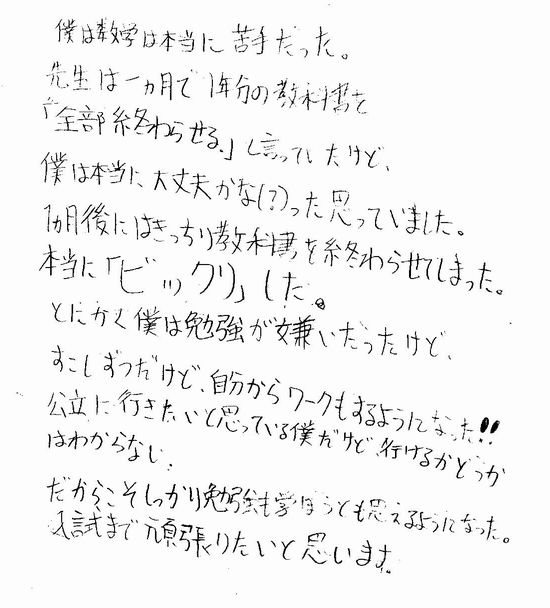 僕は数学は本当に苦手だった。
先生は一ヵ月で1年分の教科書を
「全部終わらせる。」と言っていたけど、
僕は本当に大丈夫かな(?)った思っていました。
1ヵ月後にはきっちり教科書を終わらせてしまった。
本当に「ビックリ」した。
とにかく僕は勉強が嫌いだったけど、
すこしずつだけど、自分からワークもするようになった!!
公立に行きたいと思っている僕だけど、行けるかどうか
はわからない。
だからこそしっかり勉強も学ぼうとも思えるようになった。
入試まで頑張りたいと思います。